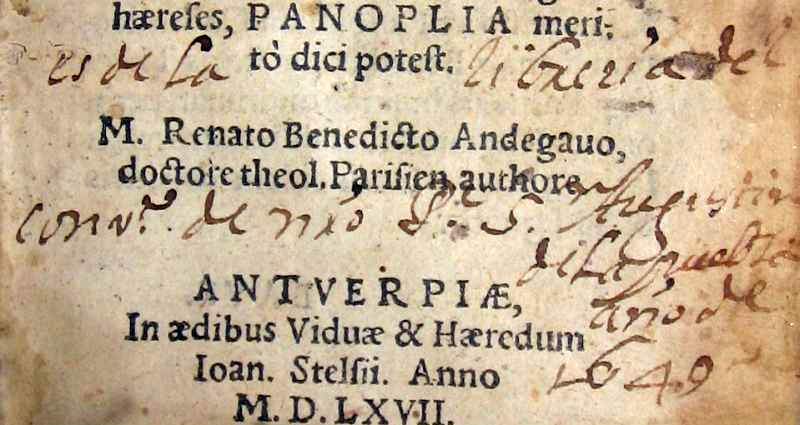 hæreses, PANOPLIA meri-
tò dici potest.
es de la libreria del
M. Renato Benedicto Andegauo,
doctore theol. Parisien. authore
convto. de nro Pe. S. Augustin
de la Puebla
año de
1649
ANTVERPIÆ,
In ædibus Viduæ & Hæredum
Ioan. Stelsii. Anno
M. D. LXVII.